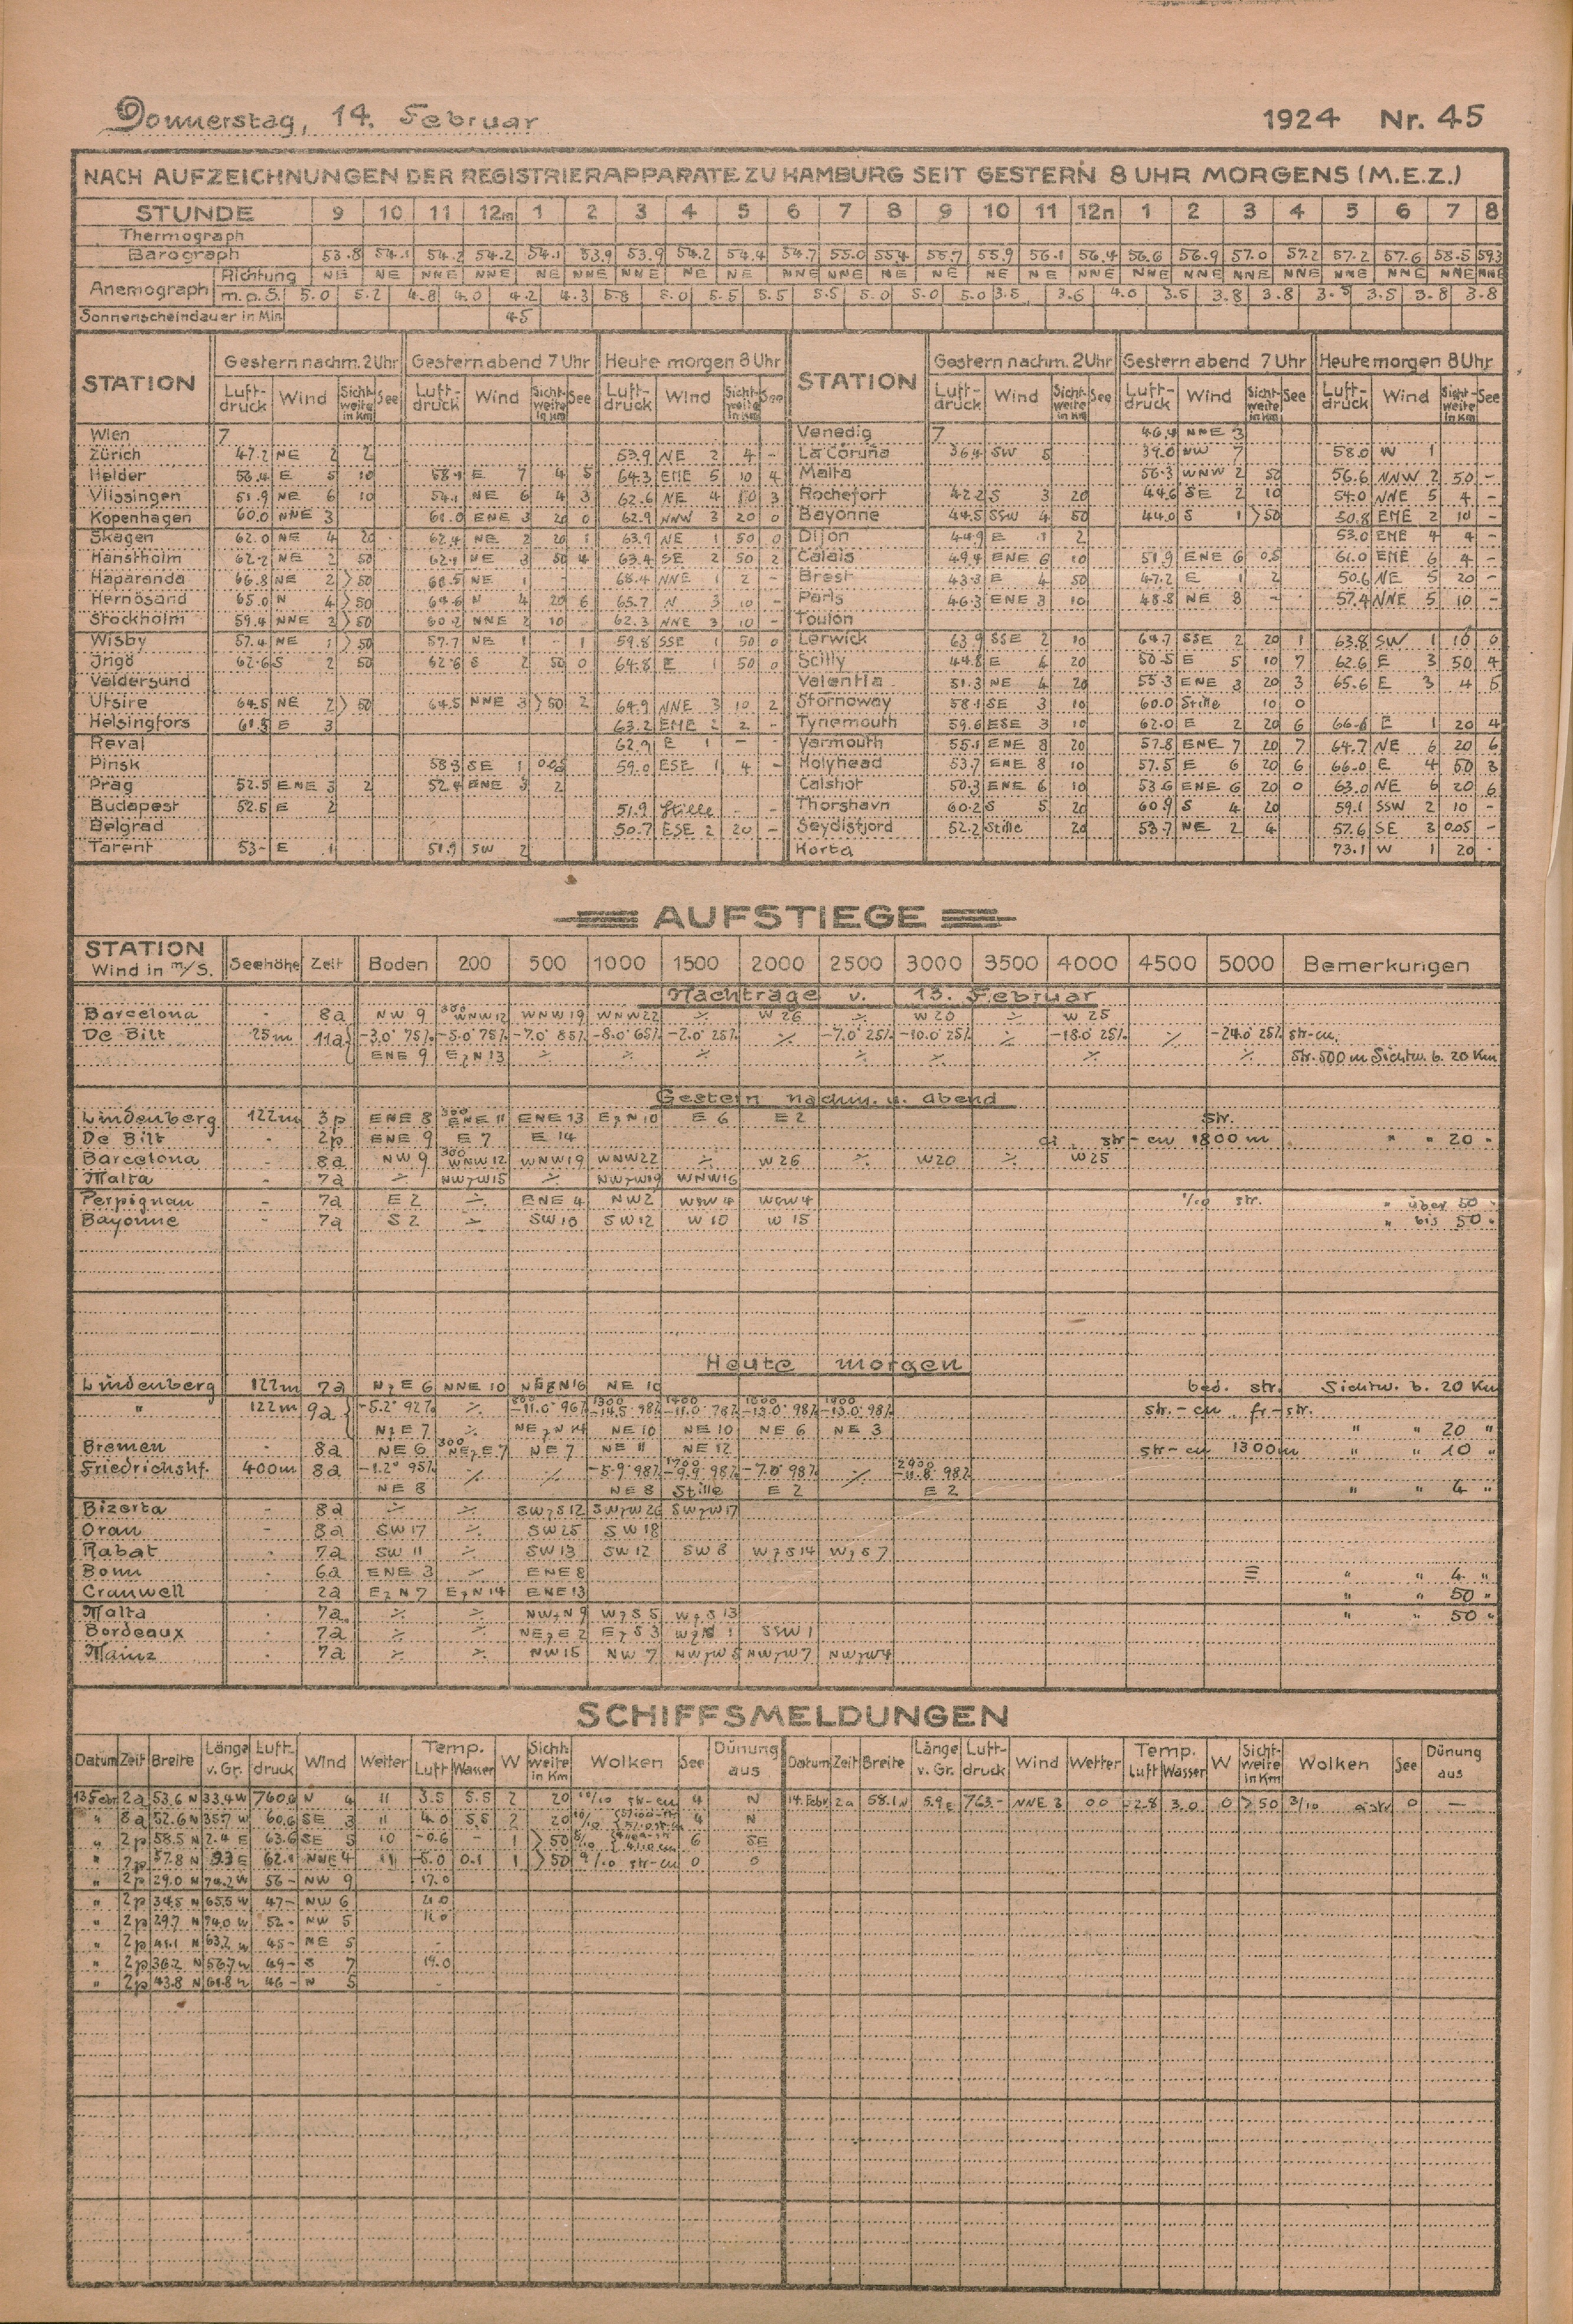 Donnerstag, 14. Februar 1924 Nr. 45
NACH AUFZEICHNUNGEN DER REGISTRIERAPPARATE ZU HAMBURG SEIT GESTERN 8 UHR MORGENS (M.E.Z.)
STUNDE 9 10 11 12m 1 2 3 4 5 6 7 8 9 10 11 12n 1 2 3 4 5 6 7 8
Thermograph
Barograph 53.8 54.1 54.2 54.2 54.1 53.9 53.9 54.2 54.4 54.7 55.0 55.4 55.7 55.9 56.1 56.4 56.6 56.9 57.0 57.2 57.2 57.6 58.5 59.3
Anemograph Richtung NE NE NNE NNE NE NNE NNE NE NE NNE NNE NE NE NE NE NE NNE NNE NNE NNE NNE NNE NNE NNE
m.p.S. 5.0 5.2 4.8 4.0 4.2 4.3 5.8 5.0 5.5 5.5 5.5 5.0 5.0 5.0 3.5 3.6 4.0 3.5 3.8 3.8 3.5 3.5 3.8 3.8
Sonnenscheindauer in Min 45
STATION Gestern nachm. 2 Uhr Gestern abend 7 Uhr Heute morgen 8 Uhr STATION Gestern nachm. 2 Uhr Gestern abend 7 Uhr Heute morgen 8 Uhr
Luftdruck Wind Sichtweite in Km See Luftdruck Wind Sichtweite in Km See Luftdruck Wind Sichtweite in Km See Luftdruck Wind Sichtweite in Km See Luftdruck Wind Sichtweite in Km See Luftdruck Wind Sichtweite in Km See
Wien 7 Venedig 7 46.4 NNE 3
Zürich 47.2 NE 2 2 53.9 NE 2 4 - La Coruña 36.4 SW 5 39.0 NW 7 58.0 W 1
Helder 56.4 E 5 10 58.4 E 7 4 5 64.3 ENE 5 10 4 Malta 56.3 WNW 2 50 56.6 NNW 2 50 -
Vlissingen 51.9 NE 6 10 54.1 NE 6 4 3 62.6 NE 4 10 3 Rochefort 42.2 S 3 20 44.6 SE 2 10 54.0 NNE 5 4 -
Kopenhagen 60.0 NNE 3 61.0 ENE 3 20 0 62.9 NNW 3 20 0 Bayonne 44.5 SSW 4 50 44.0 S 1 >50 50.8 ENE 2 10 -
Skagen 62.0 NE 4 20 62.4 NE 2 20 1 63.9 NE 1 50 0 Dijon 44.9 E 1 2 53.0 ENE 4 4 -
Hanstholm 62.2 NE 2 50 62.1 NE 3 50 4 63.4 SE 2 50 2 Calais 49.4 ENE 6 10 51.9 ENE 6 0.5 61.0 ENE 6 4 -
Haparanda 66.8 NE 2 >50 68.5 NE 1 - 68.4 NNE 1 2 - Brest 43.3 E 4 50 47.2 E 1 2 50.6 NE 5 20 -
Hernösand 65.0 N 4 >50 64.6 N 4 20 6 65.7 N 3 10 - Paris 46.3 ENE 3 10 48.8 NE 8 - 57.4 NNE 5 10 -
Stockholm 59.4 NNE 2 >50 60.2 NNE 2 10 62.3 NNE 3 10 - Toulon
Wisby 57.4 NE 1 >50 57.7 NE 1 1 59.8 SSE 1 50 0 Lerwick 63.9 SSE 2 10 64.7 SSE 2 20 1 63.8 SW 1 10 0
Ingö 62.6 S 2 50 62.6 S 2 50 0 64.8 E 1 50 0 Scilly 44.8 E 6 20 50.5 E 5 10 7 62.6 E 3 50 4
Valdersund Valentia 51.3 NE 4 20 55.3 ENE 3 20 3 65.6 E 3 4 5
Utsire 64.5 NE 2 >50 64.5 NNE 3 >50 2 64.9 NNE 3 10 2 Stornoway 58.1 SE 3 10 60.0 Stille 10 0
Helsingfors 61.5 E 3 63.2 ENE 2 2 - Tynemouth 59.6 ESE 3 10 62.0 E 2 20 6 66.6 E 1 20 4
Reval 62.9 E 1 - Yarmouth 55.1 ENE 8 20 57.8 ENE 7 20 7 64.7 NE 6 20 6
Pinsk 58.3 SE 1 0.05 59.0 ESE 1 4 - Holyhead 53.7 ENE 8 10 57.5 E 6 20 6 66.0 E 4 50 3
Prag 52.5 ENE 3 2 52.4 ENE 3 2 Calshot 50.3 ENE 6 10 53.6 ENE 6 20 0 63.0 NE 6 20 6
Budapest 52.5 E 2 51.9 Stille - - Thorshavn 60.2 S 5 20 60.9 S 4 20 59.1 SSW 2 10 -
Belgrad 50.7 ESE 2 20 - Seydisfjord 52.2 Stille 20 53.7 NE 2 4 57.6 SE 3 0.05 -
Tarent 53- E 1 51.9 SW 2 Horta 73.1 W 1 20 -
AUFSTIEGE
STATION Wind in m/S. Seehöhe Zeit Boden 200 500 1000 1500 2000 2500 3000 3500 4000 4500 5000 Bemerkungen
Nachträge v. 13. Februar
Barcelona - 8a NW 9 300 WNW 12 WNW 19 WNW 22 ⁒ W 26 ⁒ W 20 ⁒ W 25
De Bilt 25m 11a -3.0° 75% -5.0° 75% -7.0° 85% -8.0° 65% -2.0° 25% ⁒ -7.0° 25% -10.0° 25% ⁒ -18.0° 25% ⁒ -24.0° 25% str-cu.
ENE 9 EzN 13 ⁒ ⁒ ⁒ ⁒ ⁒ ⁒ ⁒ Str. 500 m Sichtw. b. 20 Km
Gestern nachm. u. abend
Lindenberg 122m 3p ENE 8 300 ENE 11 ENE 13 EzN 10 E 6 E 2 Str.
De Bilt - 2p ENE 9 E 7 E 14 ci., str-cu 1800 m " " 20 "
Barcelona - 8a NW 9 300 WNW 12 WNW 19 WNW 22 ⁒ W 26 ⁒ W 20 ⁒ W 25
Malta - 7a ⁒ NWzW 15 ⁒ NWzW 19 WNW 16
Perpignan - 7a E 2 ⁒ ENE 4 NW 2 WSW 4 WSW 4 1/10 str. " über 50 "
Bayonne - 7a S 2 ⁒ SW 10 SW 12 W 10 W 15 " bis 50 "
Heute morgen
Lindenberg 122m 7a NzE 6 NNE 10 NEzN 16 NE 10 bed. str. Sichtw. b. 20 Km
" 122m 9a -5.2° 92% ⁒ 800 -11.0° 96% 1300 -14.5° 98% 1400 -11.0° 78% 1600 -13.0° 98% 1900 -13.0° 98% str.-cu., fr-str.
NzE 7 ⁒ NEzN 14 NE 10 NE 10 NE 6 NE 3 " " 20 "
Bremen - 8a NE 6 300 NEzE 7 NE 7 NE 11 NE 12 str-cu 1300m " " 10 "
Friedrichshf. 400m 8a -1.2° 95% ⁒ ⁒ -5.9° 98% 1700 -9.9° 98% -7.0° 98% ⁒ 2900 -11.8° 98%
NE 8 NE 8 Stille E 2 E 2 " " 4 "
Bizerta - 8a ⁒ ⁒ SWzS 12 SWzW 26 SWzW 17
Oran - 8a SW 17 ⁒ SW 25 SW 18
Rabat - 7a SW 11 ⁒ SW 13 SW 12 SW 8 WzS 14 WzS 7
Bonn - 6a ENE 3 ENE 8 ≡ " " 4 "
Cranwell - 2a EzN 7 EzN 14 ENE 13 " " 50 "
Malta - 7a ⁒ ⁒ NWzN 9 WzS 5 WzS 13 " " 50 "
Bordeaux - 7a ⁒ ⁒ NEzE 2 EzS 3 1 SSW 1
Mainz - 7a ⁒ ⁒ NW 15 NW 7 NWzW 5 NWzW 7 NWzW 4
SCHIFFSMELDUNGEN
Datum Zeit Breite Länge v. Gr. Luftdruck Wind Wetter Temp. Luft Wasser W Sichtweite in Km Wolken See Dünung aus Datum Zeit Breite Länge v. Gr. Luftdruck Wind Wetter Temp. Luft Wasser W Sichtweite in Km Wolken See Dünung aus
13 Febr 2a 53.6 N 33.4 W 760.6 N 4 11 3.5 5.5 2 20 10/10 str-cu 4 N 14. Febr 2a 58.1 N 5.9 E 763- NNE 3 00 -2.8 3.0 0 >50 3/10 a-str 0 -
" 8a 52.6 N 35.7 W 60.6 SE 3 11 4.0 5.5 2 20 10/10 4 N
" 2p 58.5 N 2.4 E 63.6 SE 5 10 -0.6 - 1 >50 6 SE
" 2p 57.8 N 9.3 E 62.1 NNE 4 11 -5.0 0.1 1 >50 9/10 str-cu 0 0
" 2p 29.0 N 74.2 W 56- NW 9 17.0
" 2p 34.5 N 65.5 W 47- NW 6 21.0
" 2p 29.7 N 74.0 W 52- NW 5
" 2p 41.1 N 63.2 W 45- NE 5 -
" 2p 36.2 N 56.7 W 49- S 7 19.0
" 2p 43.8 N 61.8 W 46- N 5 -